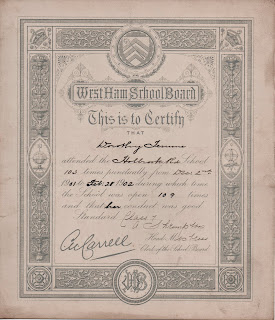 West Ham School Board
This is to Certify
THAT
Dorothy
attended the Holbrook Rd School
103 times punctually from Dec 2nd
1901 to Feb 28 1902 during which time
the School was open 109 times
and that her conduct was good.
Standard Class
Head
Clerk of the School Board